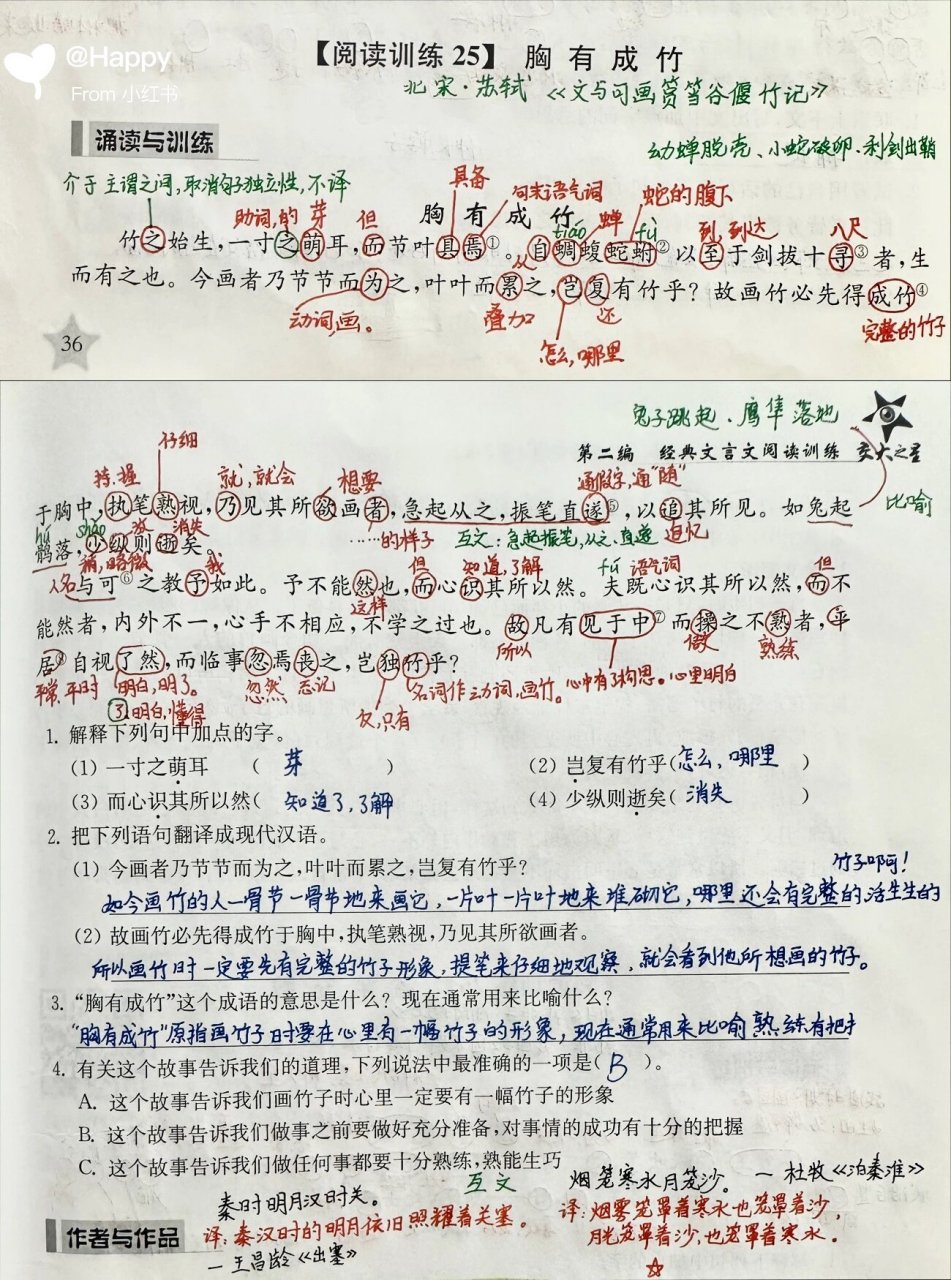 @Happy
From 小红书
【阅读训练 25】 胸 有 成 竹
北宋·苏轼 《文与可画筼筜谷偃竹记》
诵读与训练
幼蝉脱壳、小蛇破卵、利剑出鞘
介于主谓之间,取消句子独立性,不译
具备
句末语气词
蛇的腹下
助词,的 芽 但
胸 有 成 竹
tiáo 蝉 fù
到,到达 八尺
竹之始生,一寸之萌耳,而节叶具焉①。自蜩蝮蛇蚹②以至于剑拔十寻③者,生
从
而有之也。今画者乃节节而为之,叶叶而累之,岂复有竹乎?故画竹必先得成竹④
动词,画。
叠加
还
怎么,哪里
完整的竹子
36
兔子跳起、鹰隼落地
仔细
第二编 经典文言文阅读训练 交大之星
持,握
就,就会
想要
通假字,通“随”
比喻
于胸中,执笔熟视,乃见其所欲画者,急起从之,振笔直遂⑤,以追其所见。如兔起
hú shǎo 放 消失
……的样子
互文:急起振笔,从之、直遂
追忆
鹘落,少纵则逝矣。
稍,略微
人名 我 但 知道,了解 fú 语气词 但
与可⑥之教予如此。予不能然也,而心识其所以然。夫既心识其所以然,而不
这样
能然者,内外不一,心手不相应,不学之过也。故凡有见于中⑦而操之不熟者,平
所以
做
熟练
居⑧自视了然,而临事忽焉丧之,岂独竹乎?
平常,平时 明白,明了。 忽然 忘记
名词作动词,画竹。
心中有了构思。心里明白
了:明白,懂得
仅,只有
1. 解释下列句中加点的字。
(1) 一寸之萌耳 ( 芽 )
(2) 岂复有竹乎(怎么,哪里 )
(3) 而心识其所以然( 知道了,了解
(4) 少纵则逝矣( 消失 )
2. 把下列语句翻译成现代汉语。
(1) 今画者乃节节而为之,叶叶而累之,岂复有竹乎?
如今画竹的人一骨节一骨节地来画它,一片叶一片叶地来堆砌它,哪里还会有完整的,活生生的
竹子啊!
(2) 故画竹必先得成竹于胸中,执笔熟视,乃见其所欲画者。
所以画竹时一定要先有完整的竹子形象,提笔来仔细地观察,就会看到他所想画的竹子。
3. “胸有成竹”这个成语的意思是什么?现在通常用来比喻什么?
“胸有成竹”原指画竹子时要在心里有一幅竹子的形象,现在通常用来比喻熟练有把
4. 有关这个故事告诉我们的道理,下列说法中最准确的一项是( B )。
A. 这个故事告诉我们画竹子时心里一定要有一幅竹子的形象
B. 这个故事告诉我们做事之前要做好充分准备,对事情的成功有十分的把握
C. 这个故事告诉我们做任何事都要十分熟练,熟能生巧
互文
烟笼寒水月笼沙。 — 杜牧《泊秦淮》
秦时明月汉时关。
译:烟雾笼罩着寒水也笼罩着沙,
作者与作品
译:秦汉时的明月依旧照耀着关塞。
月光笼罩着沙,也笼罩着寒水。
— 王昌龄《出塞》